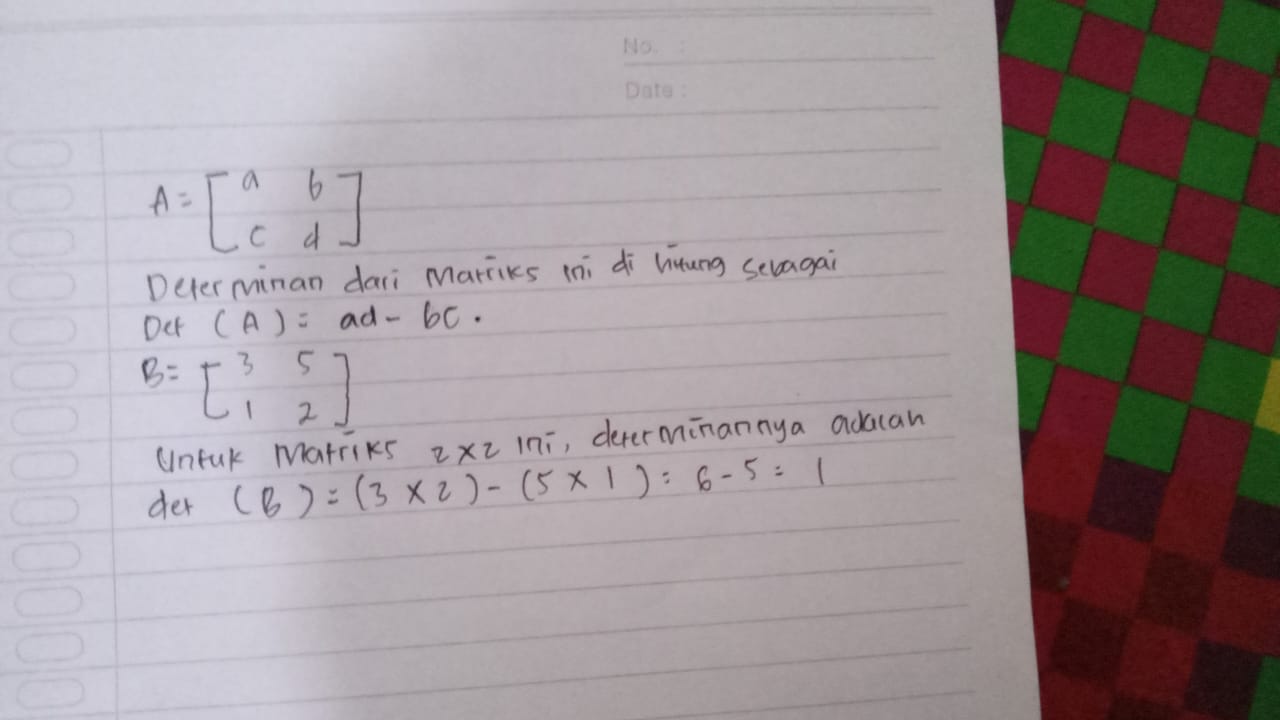 No. :
Date :
A = [ a b
c d ]
Determinan dari Matriks ini di hitung sebagai
Det (A) = ad - bc.
B = [ 3 5
1 2 ]
Untuk Matriks 2x2 ini, determinannya adalah
det (B) = (3 x 2) - (5 x 1) = 6 - 5 = 1